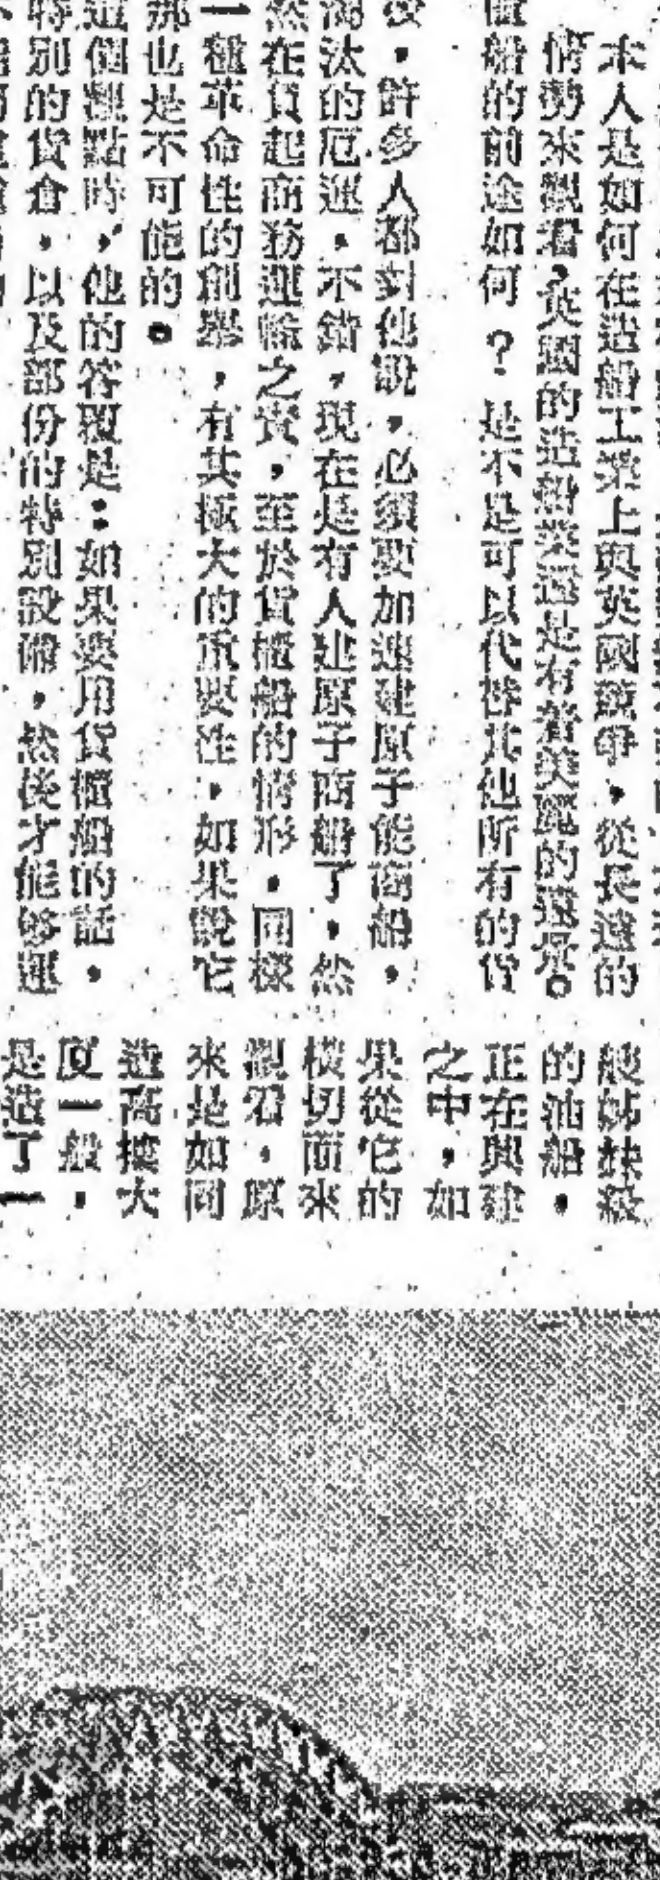 本人是如何在造船工業上與英國競爭，從長遠的
情勢來觀看，英國的造船業還是有着美麗的遠景。
船的前途如何？是不是可以代替其他所有的貨
後，許多人都對他說，必須要加速建原子能商船，
淘汰的厄運，不錯，現在是有人建原子商船了，然
然在負起商務運輸之責，至於貨櫃船的情形，同樣
一種革命性的創舉，有其極大的重要性，如果說它
那也是不可能的。
這個觀點時，他的答覆是：如果要用貨櫃船的話，
特別的貨倉，以及部份的特別設備，然後才能够運
艘姊妹級
的油船，
正在興建
之中，如
果從它的
橫切面來
觀看，原
來是如同
造高樓大
廈一般，
是造了一